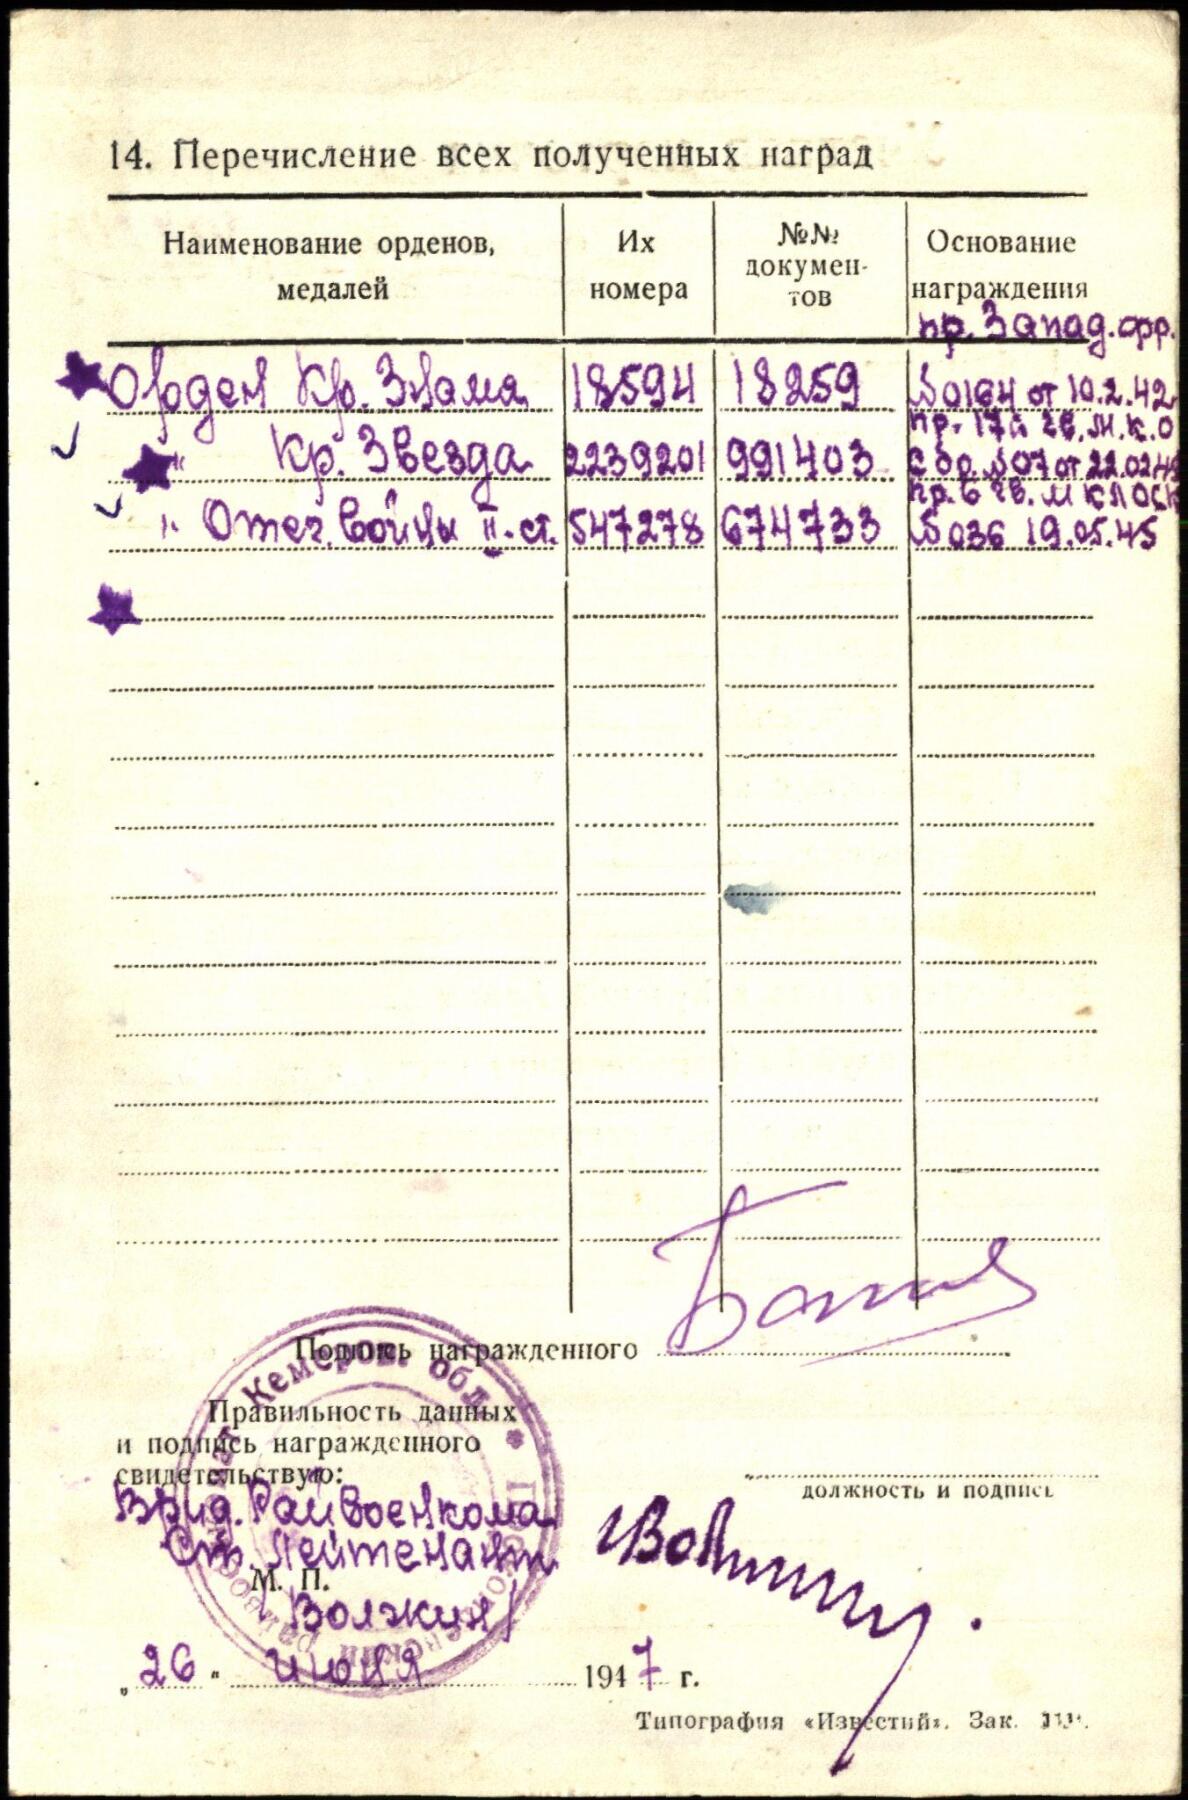 14. Перечисление всех полученных наград
Наименование орденов,
медалей
Их
номера
№№
докумен-
тов
Основание
награждения
пр. Запад. фр.
Орден Кр. Знамя 18594 18259 №0164 от 10.2.42
пр. 17й гв. М.К.О
" Кр. Звезда 2239201 991403 с бр. №07 от 22.02.45
пр. 6 гв. М К ЛОСК
" Отеч. Войны II-ст. 547278 674733 №036 19.05.45
Подпись награжденного
Кемеров. обл.
Правильность данных
и подпись награжденного
свидетельствую:
должность и подпись
Врид. Райвоенкома
Ст. Лейтенант
М. П.
/Волжкин/
„26“ июня 1947 г.
Типография «Известий». Зак.